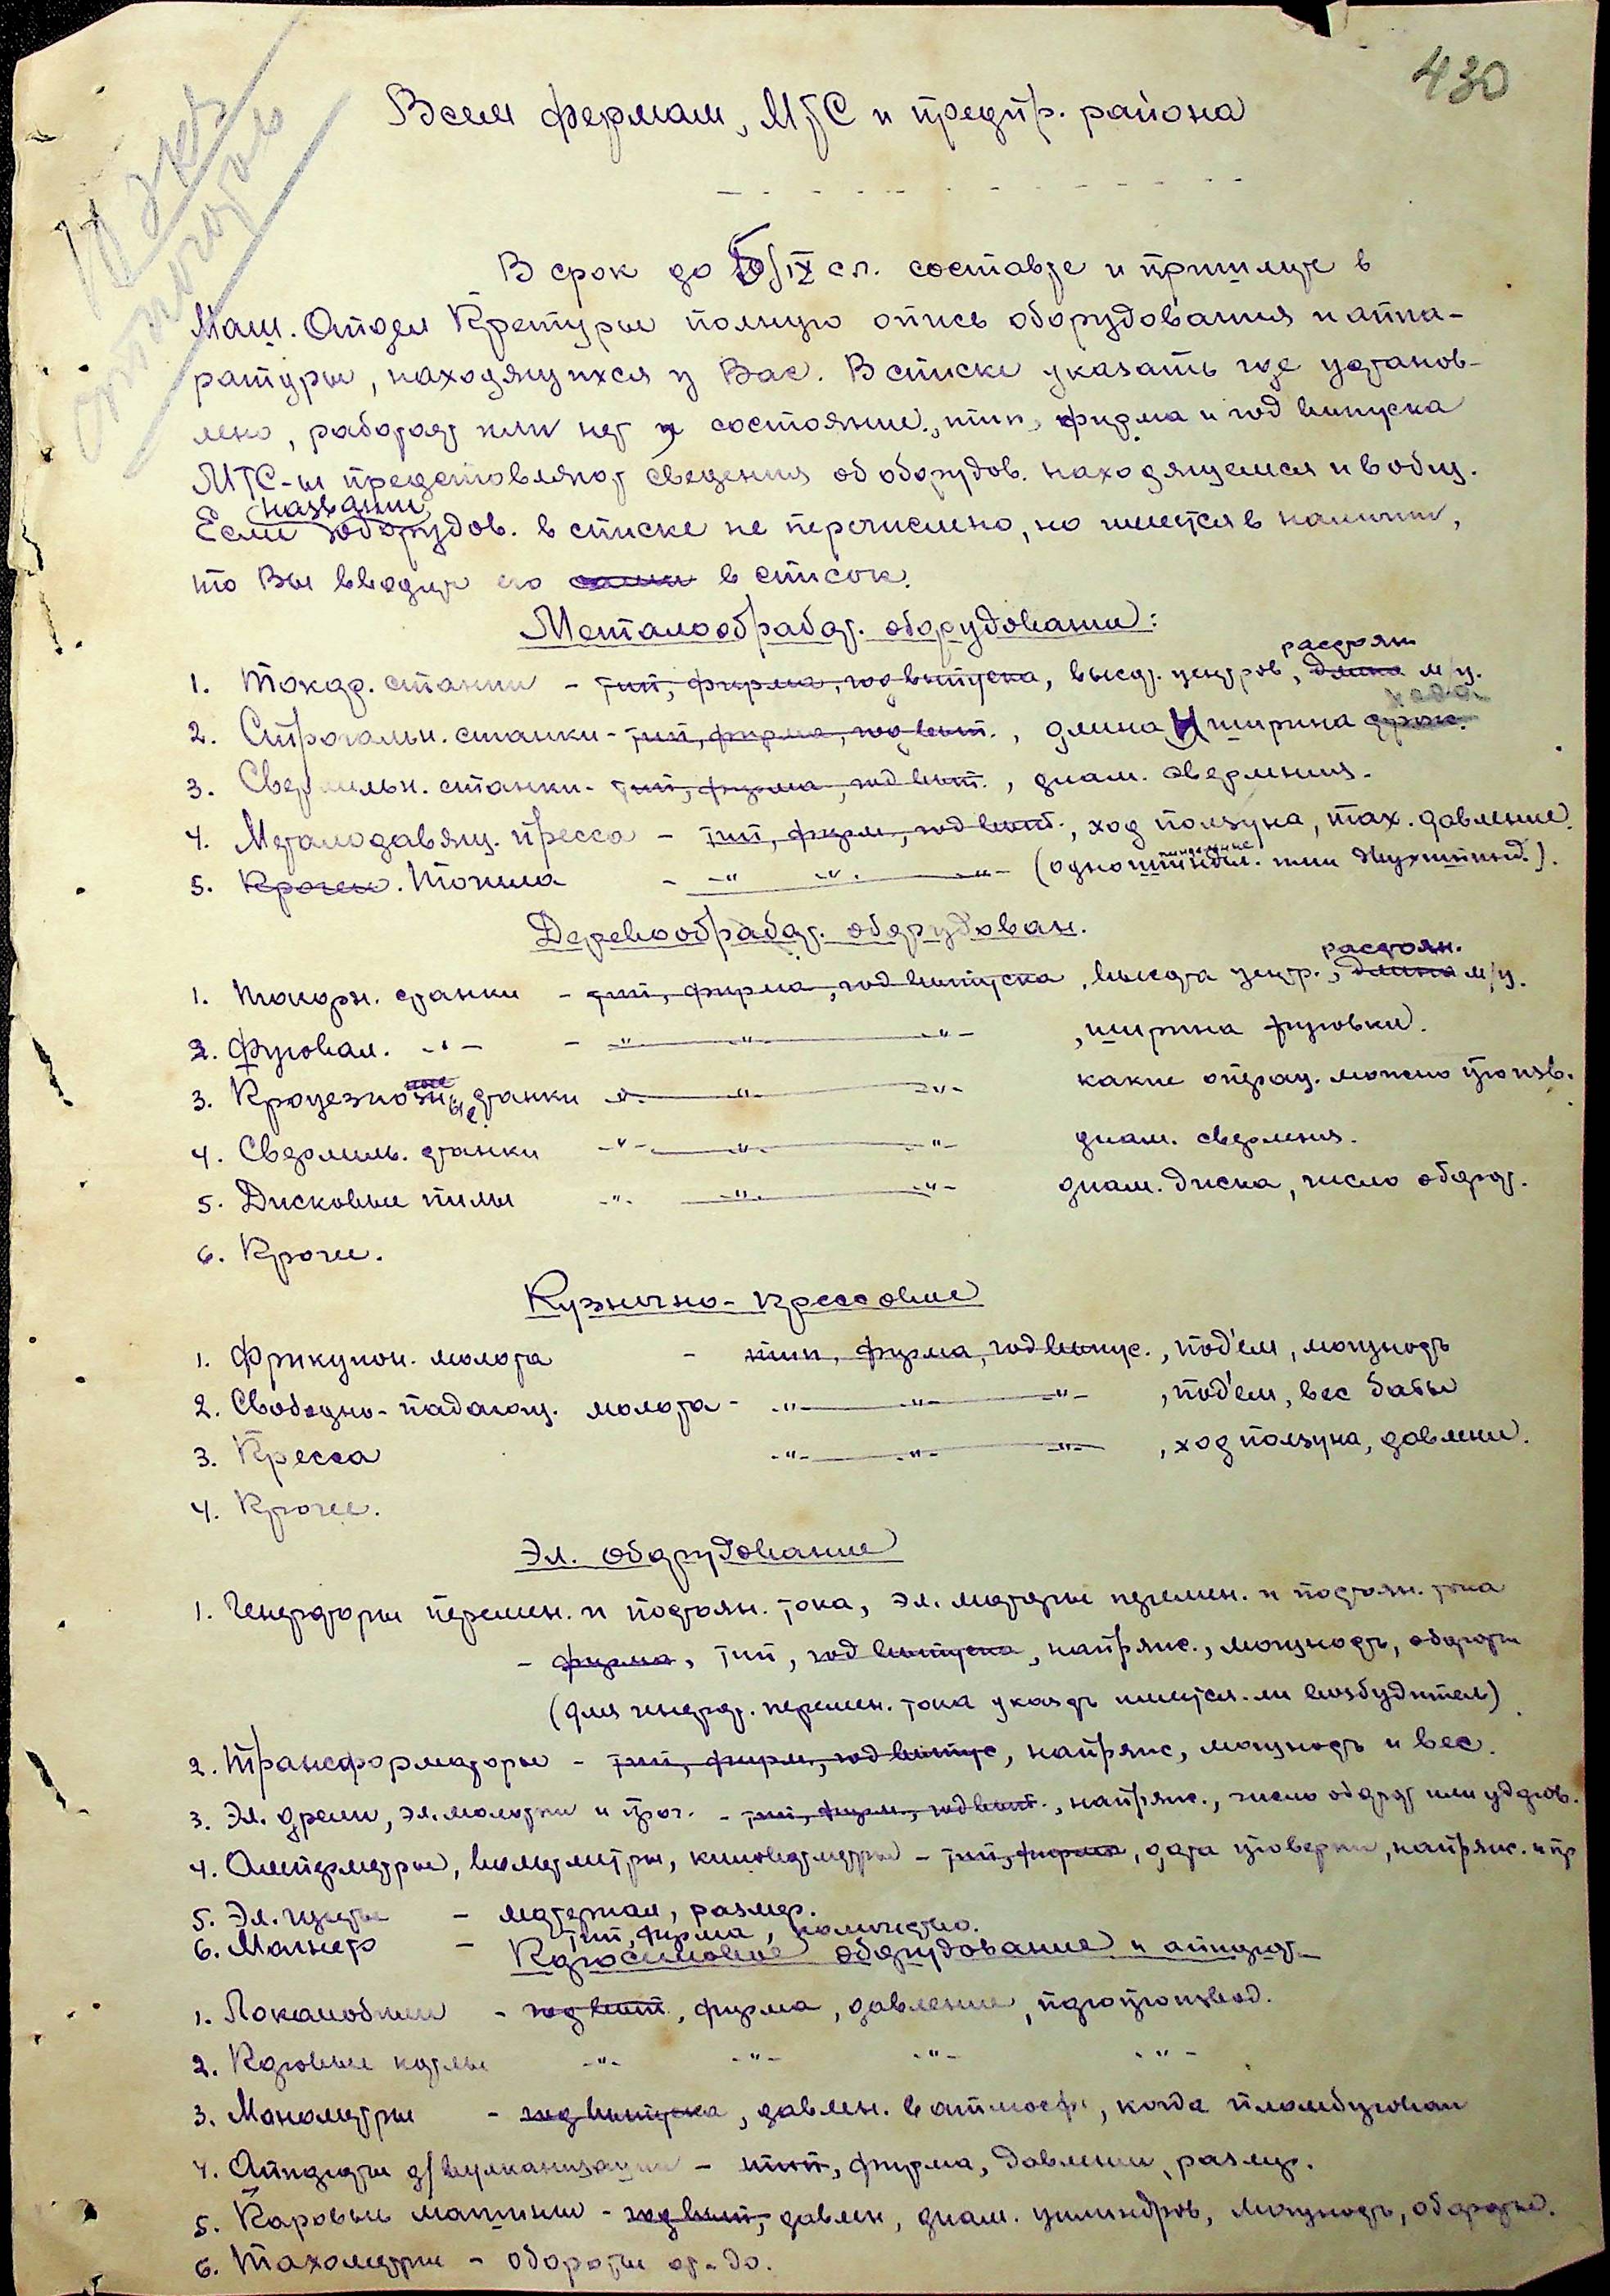 430
11 экз
Всем фермам, МТС и предпр. района
В срок до 10/IX с.г. составте и пришлите в
Маш. Отдел Префектуры полную опись оборудования и аппа-
ратуры, находящихся у Вас. В списке указать где установ-
лено, работает или нет и состояние, тип, фирма и год выпуска
МТС-ы представляют сведения об оборудов. находящемся и в общ.
названи
Если оборудов. в списке не перечислено, но имеется в наличии,
то Вы вводите его сами в список.
Металообработ. оборудование:
расстоян
1. Токар. станки - тип, фирма, год выпуска, высот. центров, длина м/ц.
хода
2. Строгальн. станки - тип, фирма, год вып., длина и ширина строж.
3. Сверлильн. станки - тип, фирма, год вып., диам. сверления.
4. Металодавящ. пресса - тип, фирм., год вып., ход ползуна, max. давление.
5. Прочее. Точила - -"- -"- -"- (одношпиндел. или двухшпинд.).
Деревообработ. оборудован.
расстоян.
1. Токарн. станки - тип, фирма, год выпуска, высота центр., длина м/ц.
2. Фуговал. -"- - -"- -"- -"- , ширина фуговки.
3. станки -"- -"- -"- какие операц. можно произв.
4. Сверлиль. станки -"- -"- -"- диам. сверления.
5. Дисковые пилы -"- -"- -"- диам. диска, число оборот.
6. Проче.
Кузнечно-прессовые
1. Фрикцион. молота - тип, фирма, год выпус., под'ем, мощность
2. Свободно-падающ. молота - -"- -"- -"- , под'ем, вес бабы
3. Пресса -"- -"- -"- , ход ползуна, давлени.
4. Проче.
Эл. оборудование
1. Генераторы перемен. и постоян. тока, эл. моторы перемен. и постоян. тока
- фирма, тип, год выпуска, напряж., мощность, обороты
(для генерат. перемен. тока указать имеется-ли возбудитель)
2. Трансформаторы - тип, фирм., год выпус, напряж, мощность и вес.
3. Эл. дрели, эл. молотки и проч. - тип, фирм., год вып., напряж., число оборот или ударов.
4. Амперметры, вольтметры, киловатметры - тип, фирма, дата проверки, напряж. и пр
5. Эл. щиты - материал, размер.
6. Магнето - тип, фирма, количество.
Паросиловое оборудование и аппарат.
1. Локомобили - год вып, фирма, давление, паропроизвод.
2. Паровые котлы -"- -"- -"- -"-
3. Манометры - год выпуска, давлен. в атмосф., когда пломбирован
4. Аппараты д/вулканизации - тип, фирма, давлени, размер.
5. Паровые машины - год вып, давлен, диам. цилиндров, мощность, обороты.
6. Тахометры - обороты от - до.